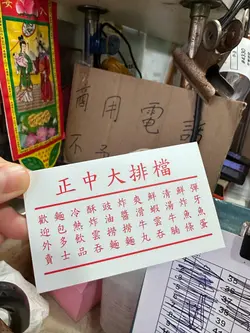 商用電話
不
正中大排檔
彈牙魚蛋
鮮炸魚條
清湯牛腩
鮮蝦雲吞
爽滑牛丸
炸醬撈麵
豉油撈麵
酥炸雲吞
冷熱飲品
麵包多士
歡迎外賣